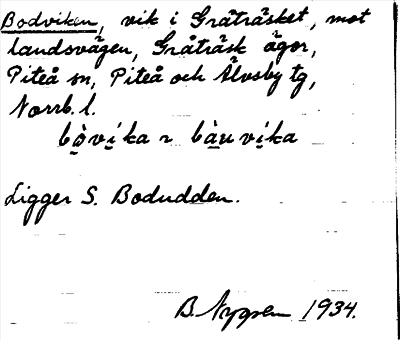 Bodviken, vik i Gråträsket, mot
landsvägen, Gråträsk ägor,
Piteå sn, Piteå och Älvsby tg,
Norrb. l.
bò̱vi̱ka ~ bàu̱vi̱ka
Ligger S. Bodudden.
B. Nygren 1934.